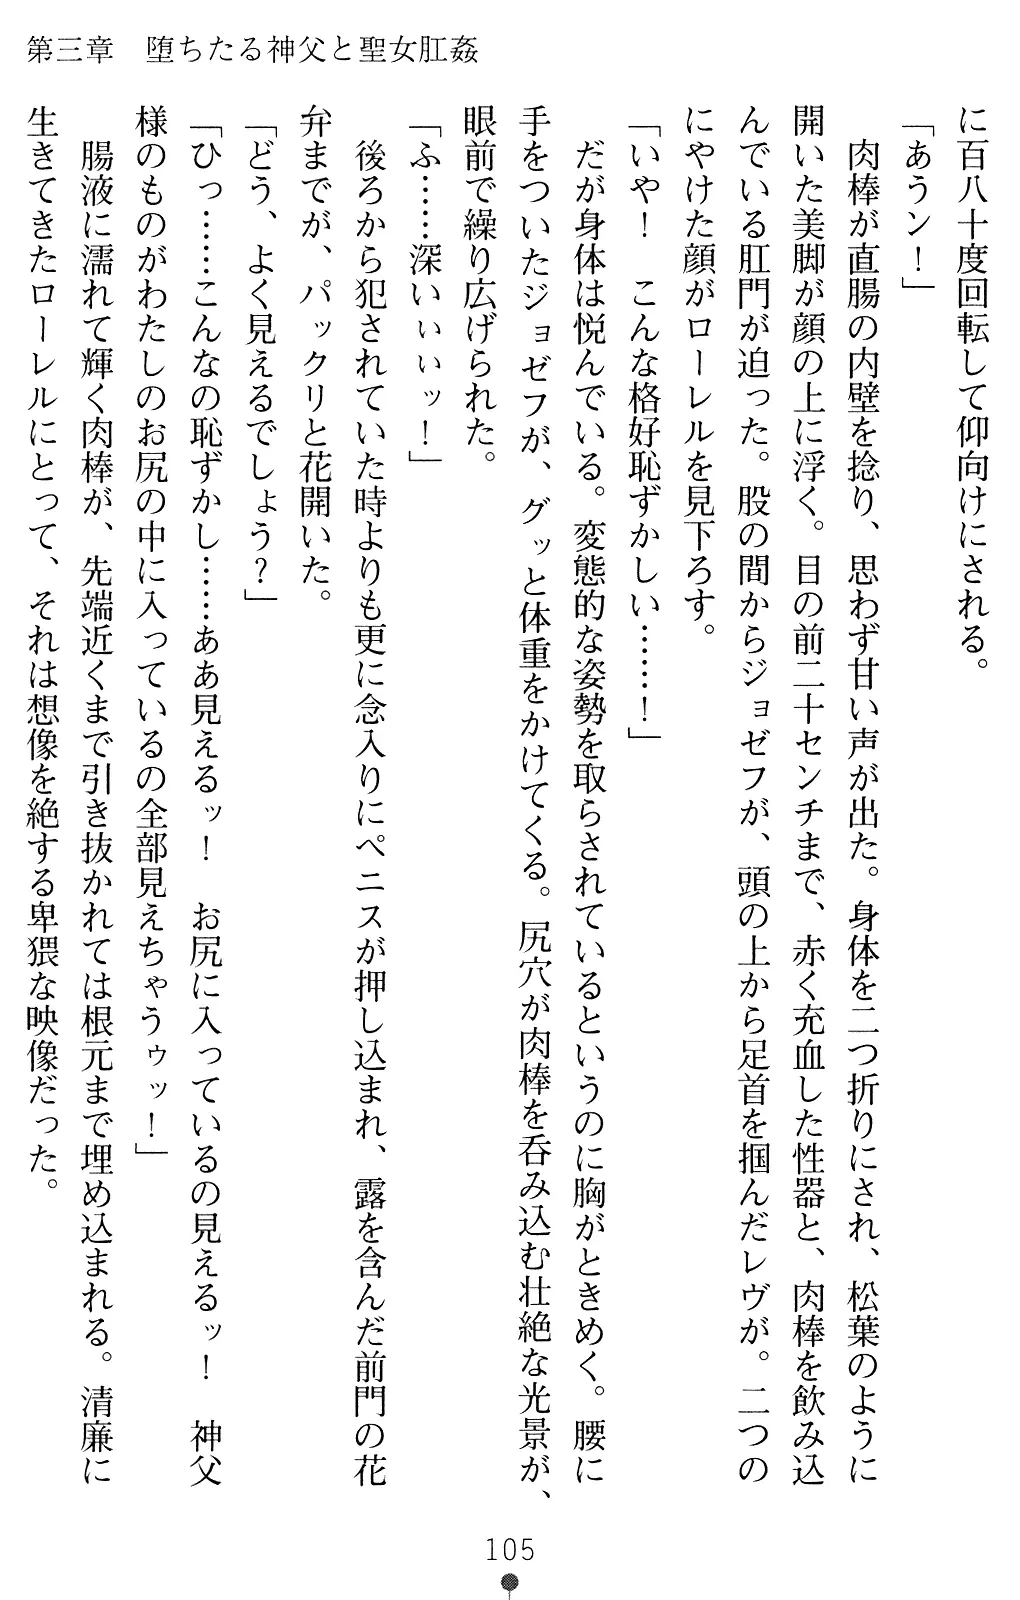 第三章　堕ちたる神父と聖女肛姦
に百八十度回転して仰向けにされる。
「あうン！」
　肉棒が直腸の内壁を捻り、思わず甘い声が出た。身体を二つ折りにされ、松葉のように
開いた美脚が顔の上に浮く。目の前二十センチまで、赤く充血した性器と、肉棒を飲み込
んでいる肛門が迫った。股の間からジョゼフが、頭の上から足首を掴んだレヴが。二つの
にやけた顔がローレルを見下ろす。
「いや！　こんな格好恥ずかしい……！」
　だが身体は悦んでいる。変態的な姿勢を取らされているというのに胸がときめく。腰に
手をついたジョゼフが、グッと体重をかけてくる。尻穴が肉棒を呑み込む壮絶な光景が、
眼前で繰り広げられた。
「ふ……深いぃぃッ！」
　後ろから犯されていた時よりも更に念入りにペニスが押し込まれ、露を含んだ前門の花
弁までが、パックリと花開いた。
「どう、よく見えるでしょう？」
「ひっ……こんなの恥ずかし……ああ見えるッ！　お尻に入っているの見えるッ！　神父
様のものがわたしのお尻の中に入っているの全部見えちゃうゥッ！」
　腸液に濡れて輝く肉棒が、先端近くまで引き抜かれては根元まで埋め込まれる。清廉に
生きてきたローレルにとって、それは想像を絶する卑猥な映像だった。
105